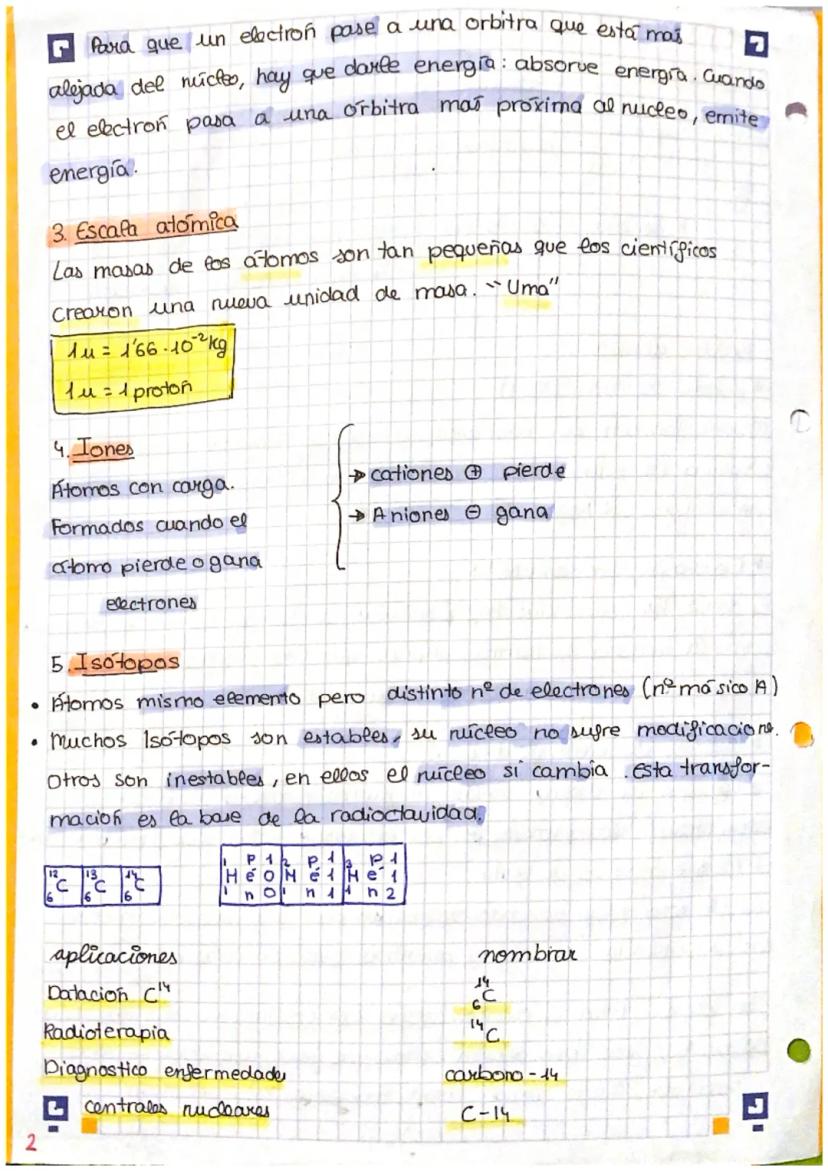 Para que un electroñ pase a una orbitra que está mas
alejada del núcleo, hay que darle energía: absorve energía. Cuando
el electroñ pasa a una órbitra mas próxima al nucleo, emite
energía.
3. Escala atómica
Las masas de los átomos son tan pequeñas que los científicos
crearon una nueva unidad de masa. "Uma"
1u = 1'66 · 10⁻² kg
1u = 1 protoñ
4. Iones
Átomos con carga.
Formados cuando el
átomo pierde o gana
electrones
→ cationes ⊕ pierde
→ Aniones ⊖ gana
5. Isótopos
• Átomos mismo elemento pero distinto nº de electrones (nº másico A)
• Muchos Isótopos son estables, su núcleo no sufre modificacione.
Otros son inestables, en ellos el núcleo si cambia. Esta transfor-
mación es la base de la radioctavidad.
¹²₆C ¹³₆C ¹⁴₆C
¹₁H p 1 é 0 n 0 ²₁H p 1 é 1 n 1 ³₁H p 1 é 1 n 2
aplicaciones nombrar
Datación C¹⁴ ¹⁴₆C
Radioterapia ¹⁴C
Diagnostico enfermedades carbono - 14
centrales nucleares C-14
2